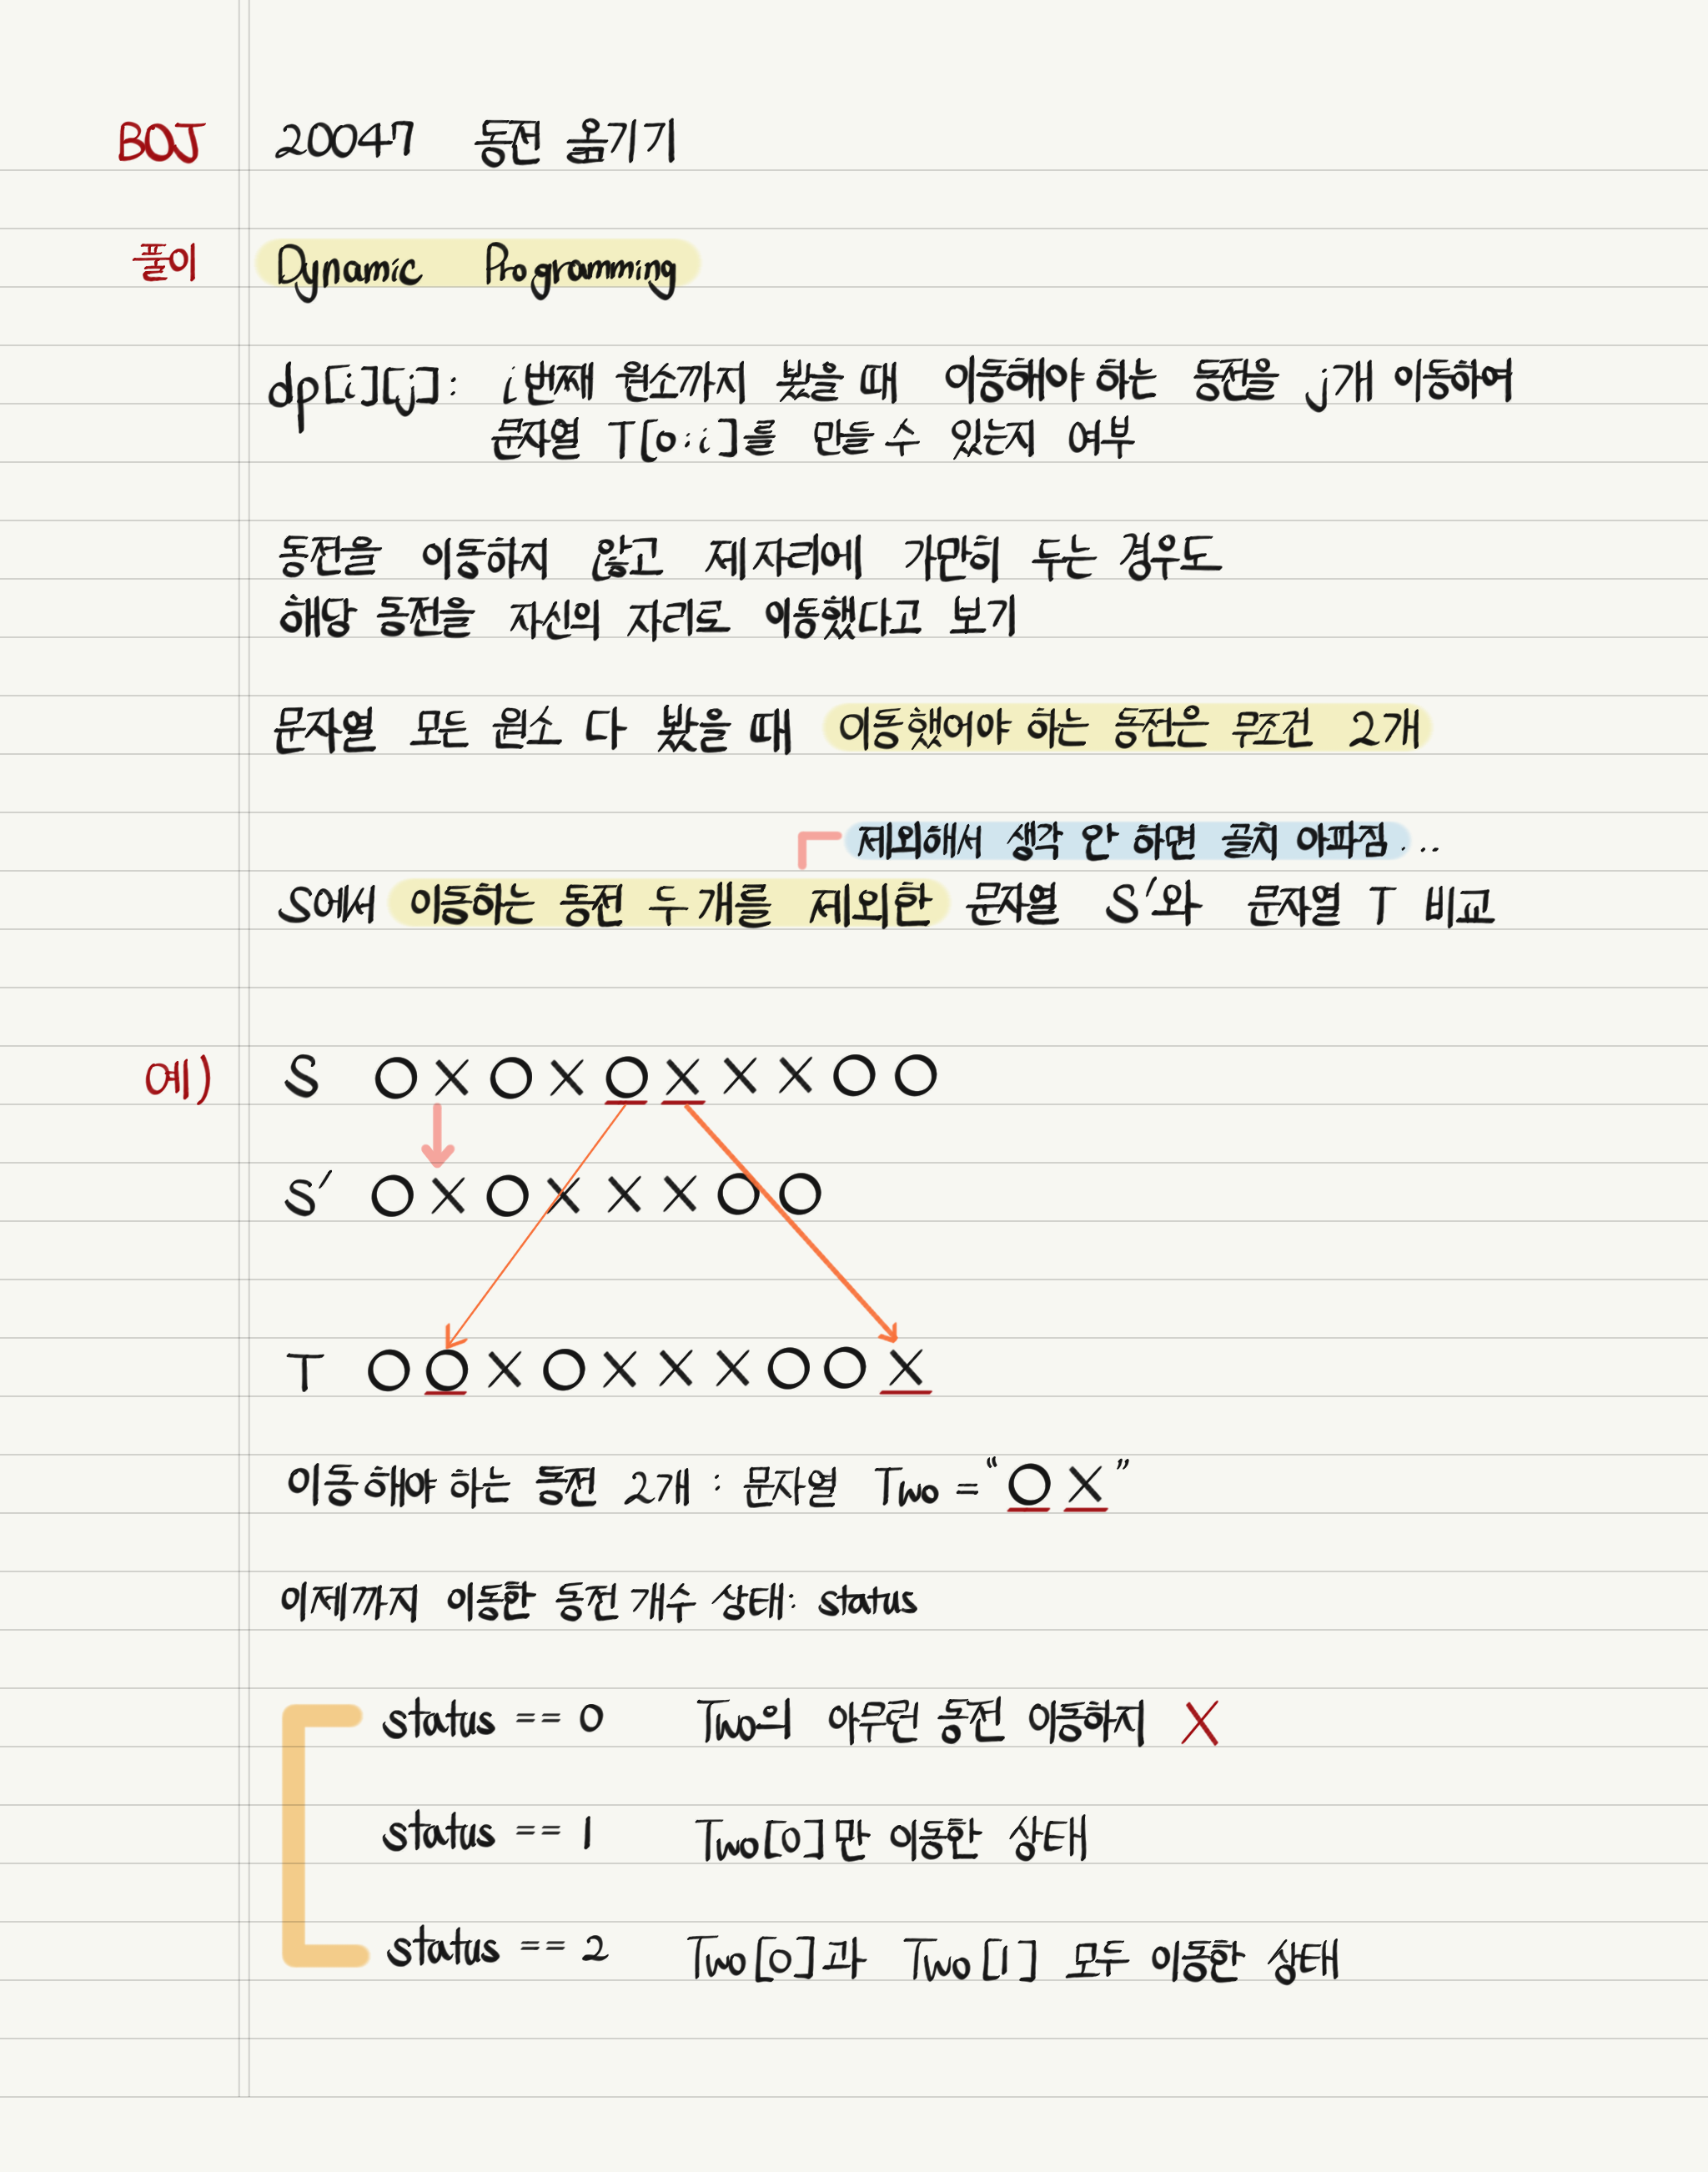 BOJ 20047 동전 옮기기
풀이 Dynamic Programming
dp[i][j] : i번째 원소까지 봤을 때 이동해야 하는 동전을 j개 이동하여
문자열 T[0:i]를 만들 수 있는지 여부
동전을 이동하지 않고 제자리에 가만히 두는 경우도
해당 동전을 자신의 자리로 이동했다고 보기
문자열 모든 원소 다 봤을 때 이동했어야 하는 동전은 무조건 2개
제외해서 생각 안 하면 골치 아파짐...
S에서 이동하는 동전 두 개를 제외한 문자열 S'와 문자열 T 비교
예) S O X O X O X X X O O
S' O X O X X X O O
T O O X O X X X O O X
이동해야 하는 동전 2개 : 문자열 Two = "O X"
이제까지 이동한 동전 개수 상태: status
status == 0 Two의 아무런 동전 이동하지 X
status == 1 Two[0]만 이동한 상태
status == 2 Two[0]과 Two[1] 모두 이동한 상태